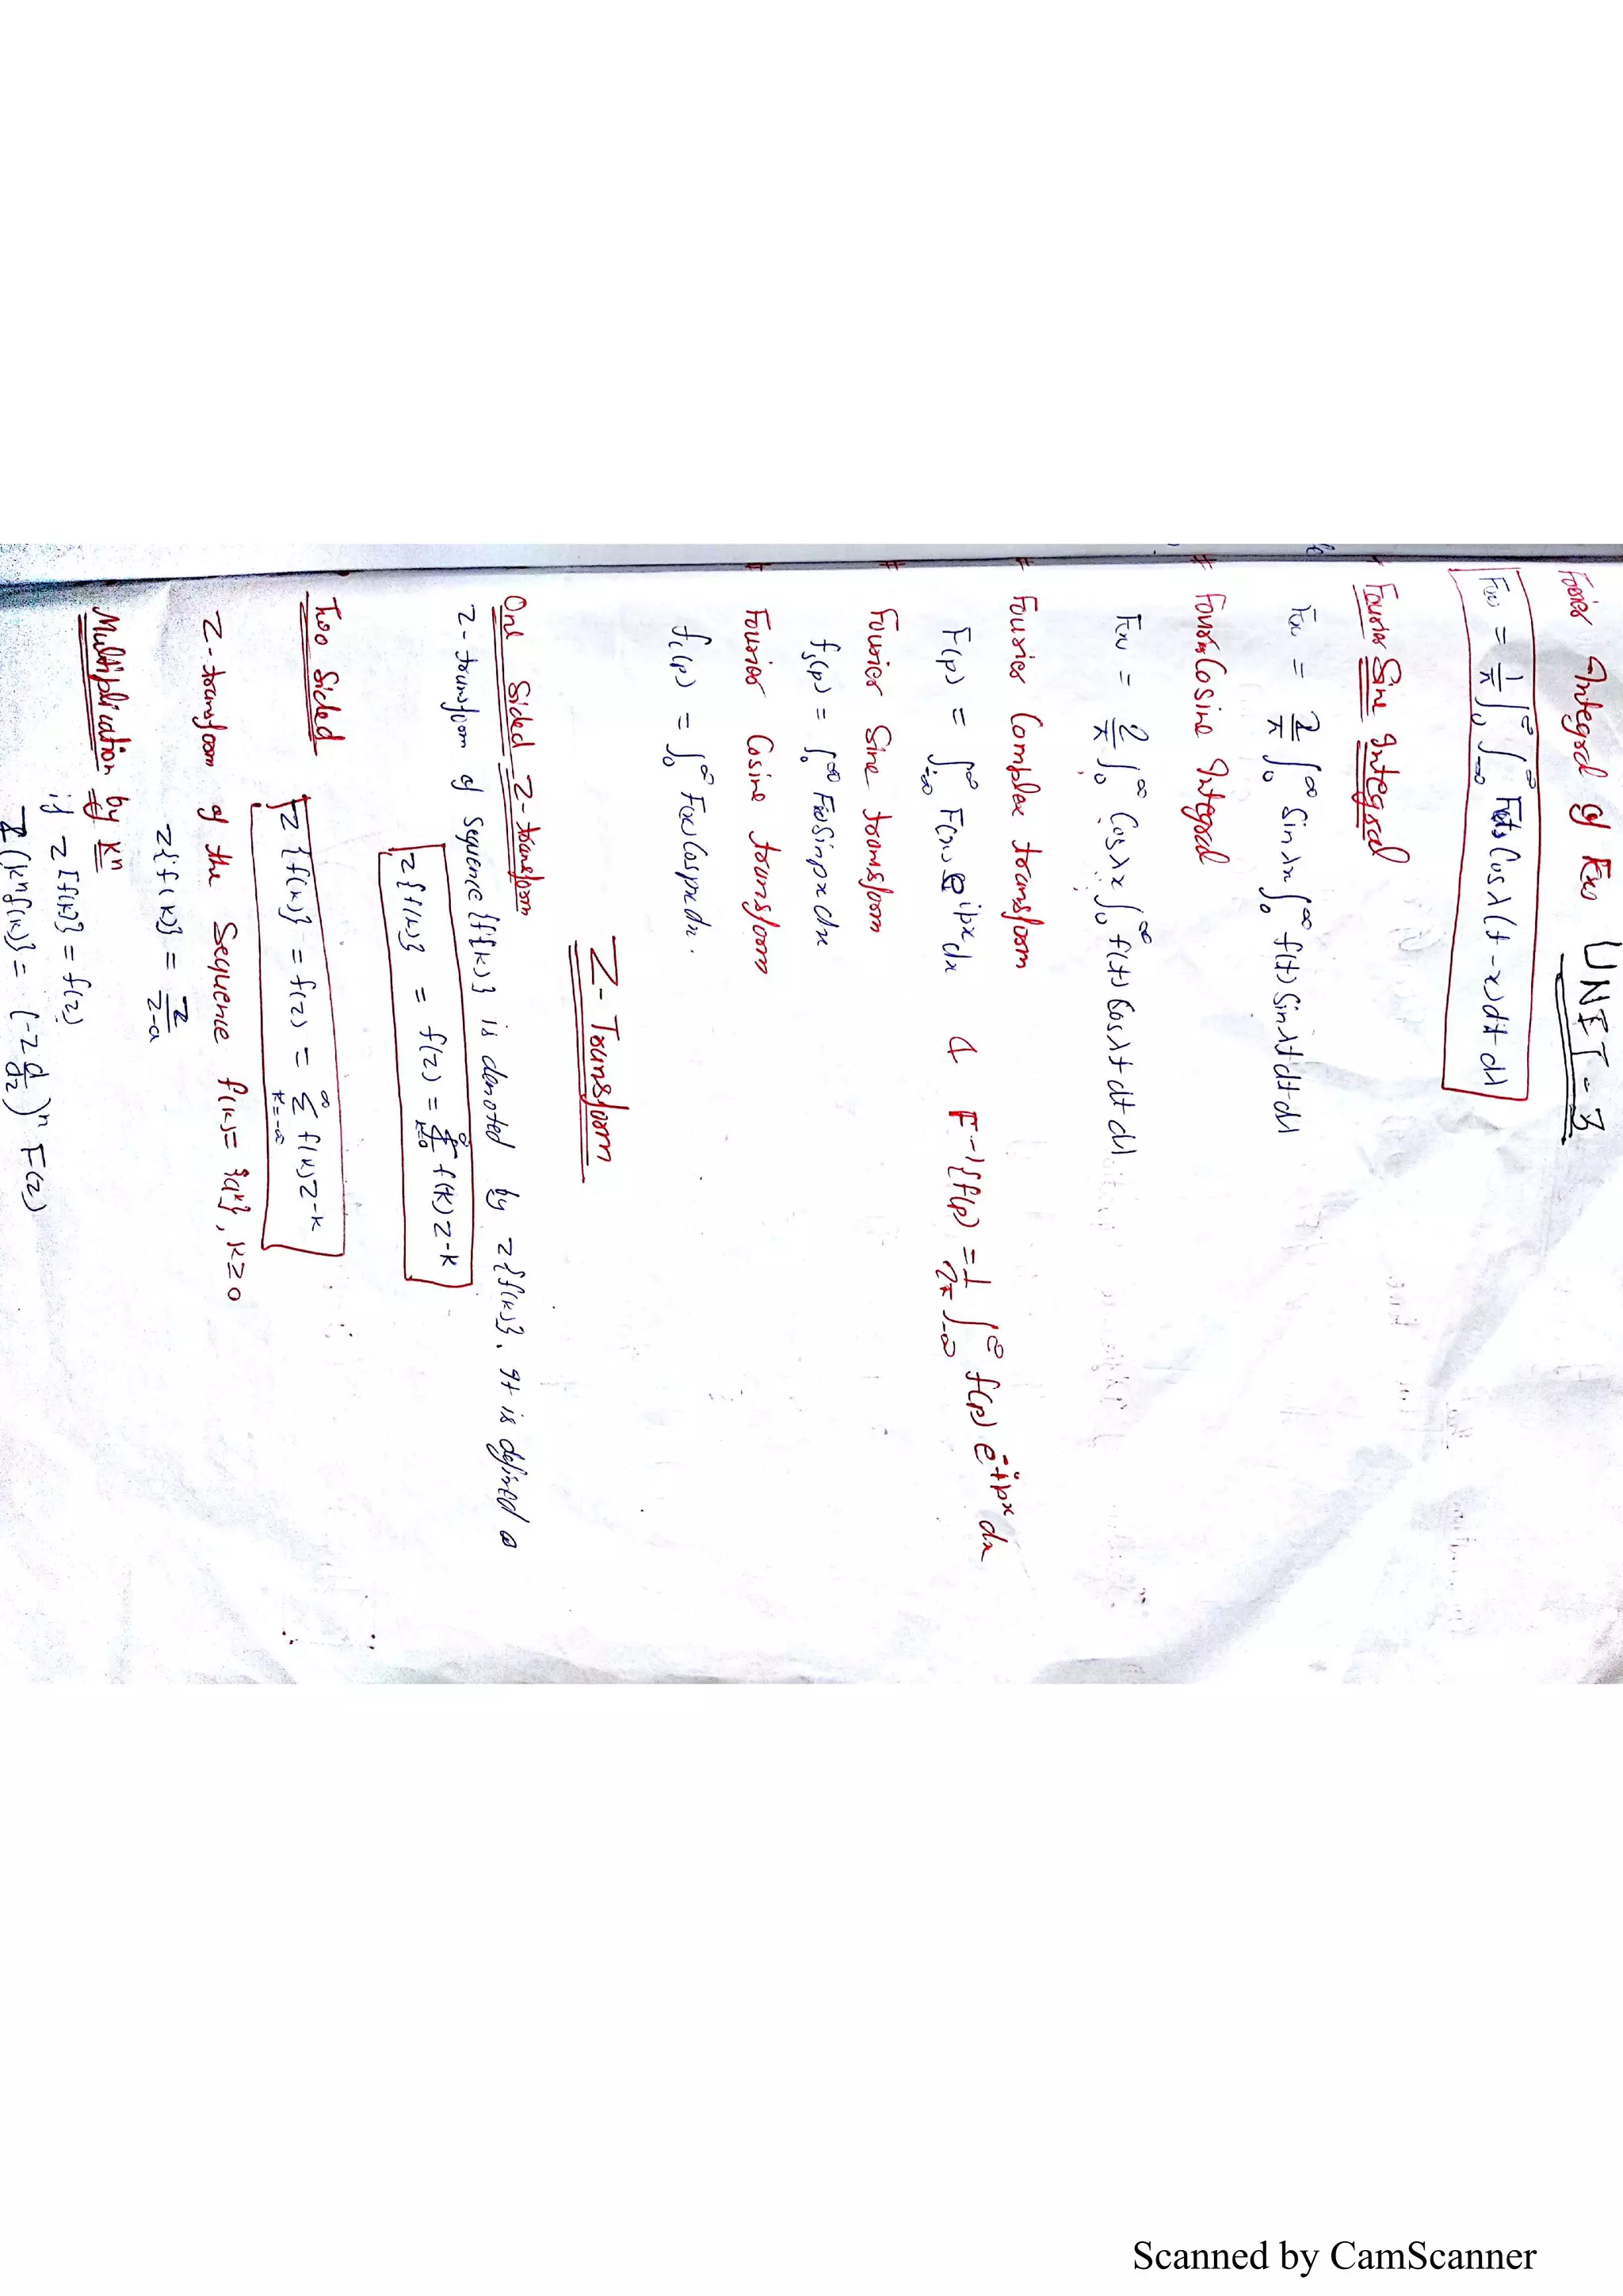 Fourier Integral of F(x) UNIT-3
F(x) = 1/π ∫₀^∞ ∫_{-∞}^∞ F(t) Cos λ(t-x) dt dλ
Fourier Sine Integral
F(x) = 2/π ∫₀^∞ Sin λx ∫₀^∞ f(t) Sin λt dt dλ
# Fourier Cosine Integral
F(x) = 2/π ∫₀^∞ Cos λx ∫₀^∞ f(t) Cos λt dt dλ
# Fourier Complex transform
F(p) = ∫_{-∞}^∞ F(x) e^{ipx} dx & F⁻¹{f(p) = 1/2π ∫_{-∞}^∞ f(p) e^{-ipx} dx
# Fourier Sine transform
fs(p) = ∫₀^∞ F(x) Sin px dx
# Fourier Cosine transform
fc(p) = ∫₀^∞ F(x) Cos px dx.
Z-Transform
One Sided Z-transform
Z-transform of Sequence {f{k)} is denoted by Z{f(k)}. It is defined as
Z{f(k)} = f(z) = Σ_{k=0}^∞ f(k) z^{-k}
Two Sided
Z{f(k)} = f(z) = Σ_{k=-∞}^∞ f(k) z^{-k}
Z-transform of the Sequence f(k) = {a^k}, k≥0
Z{f(k)} = z/(z-a)
Multiplication by k^n
if Z[f(k)} = f(z)
Z(k^n f(k)} = (-z d/dz)^n F(z)
Scanned by CamScanner